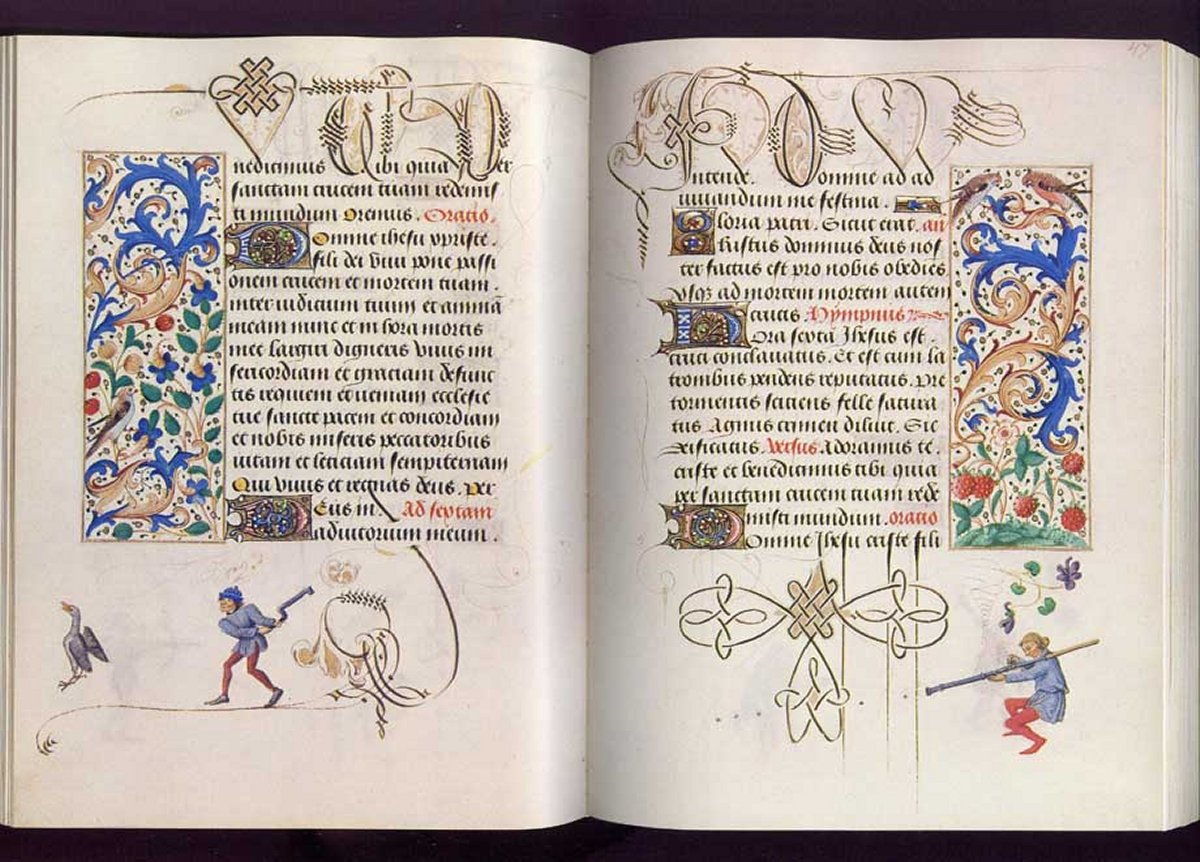 nedicimus tibi quia per
sanctam crucem tuam redemis
ti mundum Oremus. Oratio.
Domine ihesu xpriste.
fili dei viui pone passi
onem crucem et mortem tuam.
inter iudicium tuum et animā
meam nunc et in hora mortis
mee largiri digneris viuis mi
sericordiam et graciam defunc
tis requiem et ueniam ecclesie
tue sancte pacem et concordiam
et nobis miseris peccatoribus
uitam et leticiam sempiternam
Qui viuis et regnas deus. per
Deus in Ad sextam
adiutorium meum.
47
Intende. Domine ad ad
iuuandum me festina.
Gloria patri. Sicut erat. an
Christus dominus deus nos
ter factus est pro nobis obediēs
vsqz ad mortem mortem autem
crucis Hympnus
Hora sexta Ihesus est.
cruci conclauatus. Et est cum la
tronibus pendens reputatus. pre
tormentis sciciens felle satura
tus Agnus crimen diluit. Sic
Versus Adoramus te.
criste et benedicimus tibi quia
per sanctam crucem tuam rede
misti mundum. oratio
Domine Ihesu criste fili